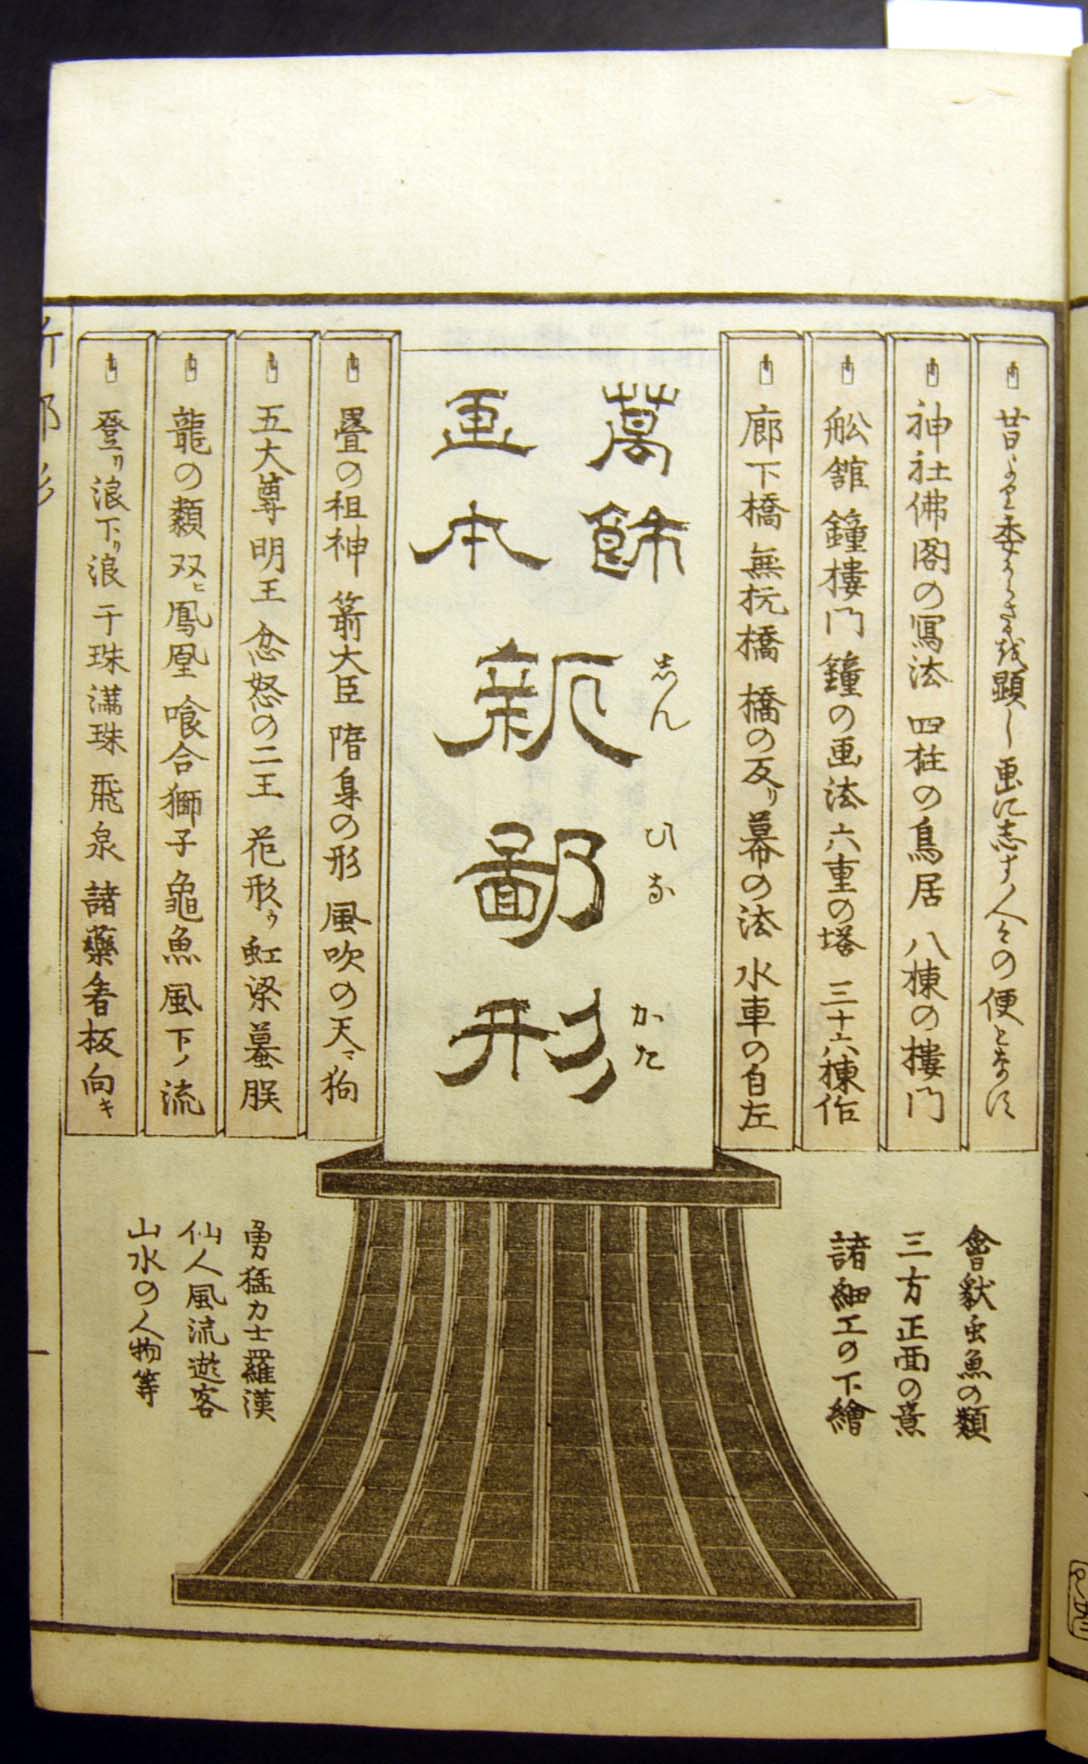 昔より委からざるを顕し画に志す人々の便となす
神社佛閣の冩法 四柱の鳥居 八棟の樓門
舩舘 鐘樓門 鐘の画法 六重の塔 三十六棟作
廊下橋 無杭橋 橋の反リ 幕の法 水車の自左
萬餝
画本
新鄙形
しん
ひな
かた
疊の祖神 箭大臣 隋身の形 風吹の天マ狗
五大尊明王 忿怒の二王 花形ゥ 虹梁蟇股
龍の類 双ヒ鳳凰 喰合獅子 龜魚 風下ノ流
登リ浪 下リ浪 干珠滿珠 飛泉 諸藥看板向キ
禽獣虫魚の類
三方正面の意
諸細工の下繪
勇猛力士羅漢
仙人風流遊客
山水の人物等